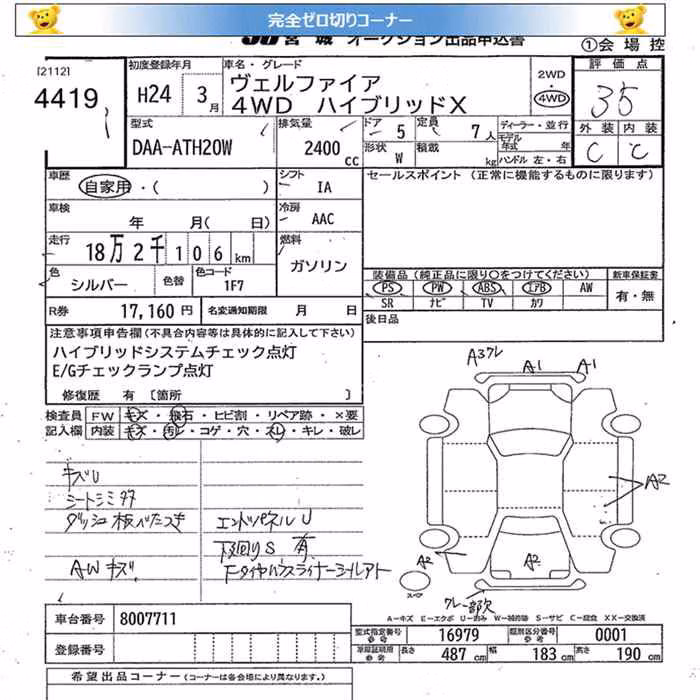 完全ゼロ切りコーナー
宮城 オークション出品申込書
①会場控
[2112]
4419
初度登録年月
H24 3月
車名・グレード
ヴェルファイア
4WD ハイブリッドX
2WD
・
4WD
評価点
3.5
外装 内装
C C
型式
DAA-ATH20W
排気量
2400 cc
ドア 5
形状 W
定員 7人
積載 kg
ディーラー・並行
モデル年式 年
ハンドル 左・右
車歴
自家用・( )
シフト
IA
セールスポイント (正常に機能するものに限ります)
車検
年 月(日)
冷房
AAC
走行
18万2千106km
燃料
ガソリン
色
シルバー
色替
色コード
1F7
装備品(純正品に限り○をつけてください)
PS PW ABS エアB AW
SR ナビ TV カワ
新車保証書
有・無
R券 17,160円
名変通知期限 月 日
後日品
注意事項申告欄(不具合内容等は具体的に記入して下さい)
ハイブリッドシステムチェック点灯
E/Gチェックランプ点灯
修復歴 有 〔箇所 〕
検査員 FW キズ・飛石・ヒビ割・リペア跡・×要
記入欄 内装 キズ・汚レ・コゲ・穴・スレ・キレ・破レ
キズU
シートシミ
ダッシュ板べたつき
AWキズ
エンドパネルU
下回りS 有
A1 A1
A2
A2
A2
スペア
A-キズ E-エクボ U-凹み W-補修跡 S-サビ C-腐食 XX-交換済
車台番号 8007711
登録番号
型式指定番号 参考 16979
類別区分番号 参考 0001
車庫証明用 参考
長さ 487cm 幅 183cm 高さ 190cm
希望出品コーナー(コーナーは各会場により異なります。)